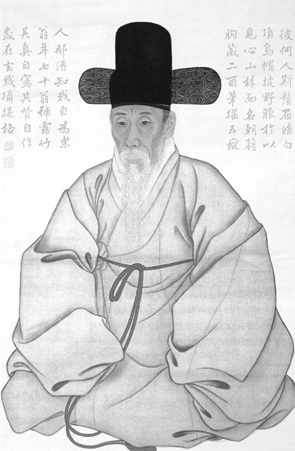 彼何人斯鬚眉皓白
頂烏帽披野服於以
見心山林而名朝籍
胸藏二酉筆搖五嶽
人那得知我自為樂
翁年七十翁號露竹
其真自寫其贊自作
歲在玄黓攝提格